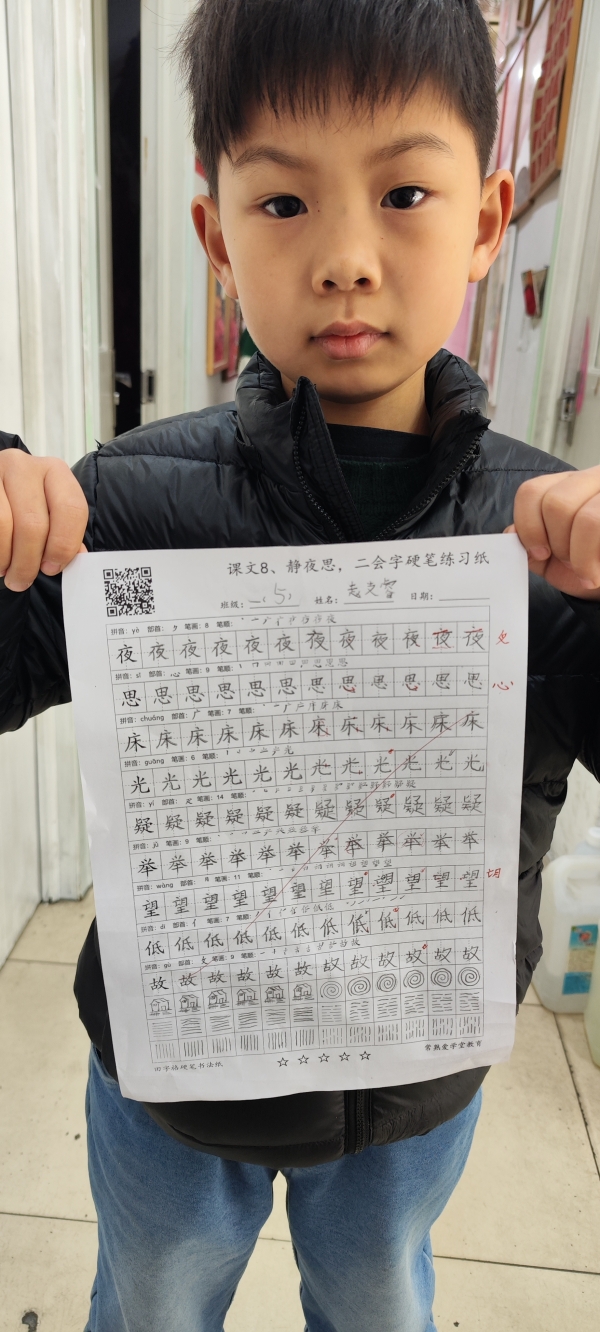 课文8、静夜思，二会字硬笔练习纸
班级：一（5） 姓名： 日期：
拼音：yè 部首：夕 笔画：8 笔顺：
夜 夜 夜 夜 夜 夜 夜 夜 夜 夜 夜 夜
拼音：sī 部首：心 笔画：9 笔顺：
思 思 思 思 思 思 思 思 思 思 思 思 心
拼音：chuáng 部首：广 笔画：7 笔顺：
床 床 床 床 床 床 床 床 床 床 床 床
拼音：guāng 部首： 笔画：6 笔顺：
光 光 光 光 光 光 光 光 光 光 光 光
拼音：yí 部首： 笔画：14 笔顺：
疑 疑 疑 疑 疑 疑 疑 疑 疑 疑 疑 疑
拼音：jǔ 部首： 笔画：9 笔顺：
举 举 举 举 举 举 举 举 举 举 举 举
拼音：wàng 部首： 笔画：11 笔顺：
望 望 望 望 望 望 望 望 望 望 望 望
拼音：dī 部首：亻 笔画：7 笔顺：
低 低 低 低 低 低 低 低 低 低 低 低
拼音：gù 部首：攵 笔画：9 笔顺：
故 故 故 故 故 故 故 故 故 故 故 故
田字格硬笔书法纸 常熟爱学堂教育